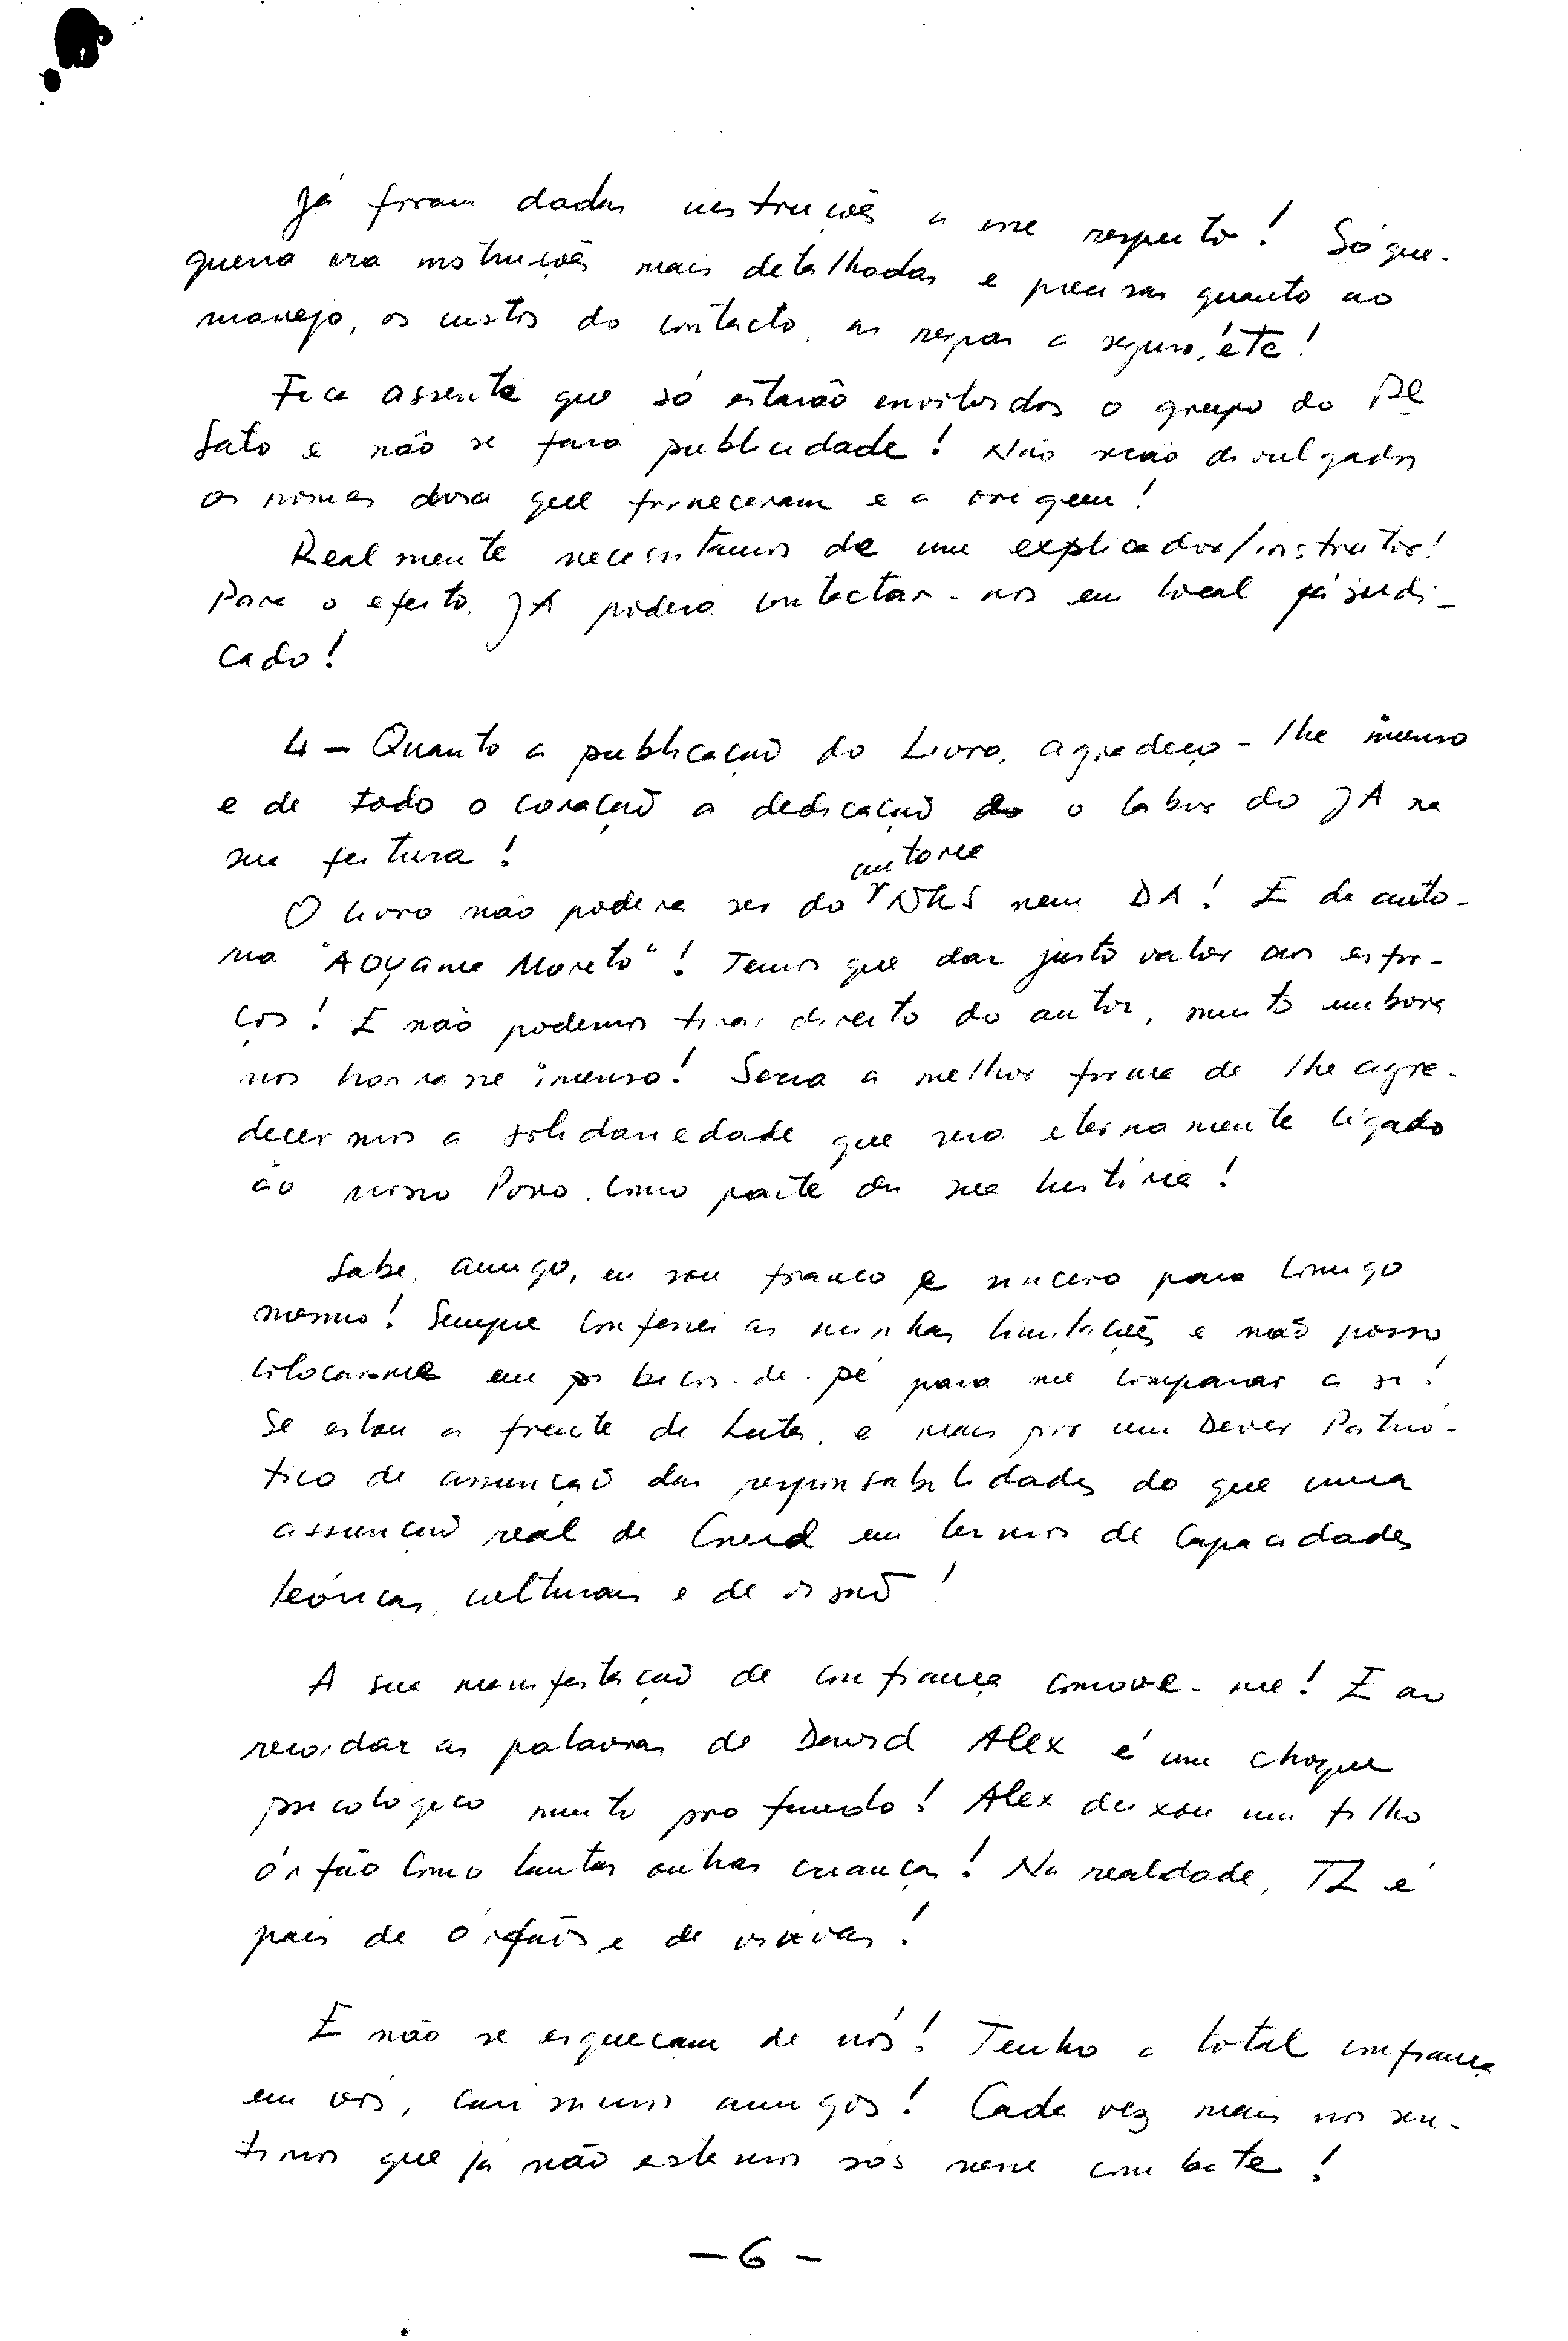 Já foram dadas instruções a esse respeito! Só que-
queria era instruções mais detalhadas e precisas quanto ao
manejo, os custos do contacto, as regras a seguir, etc!
Fica assente que só estarão envolvidos o grupo do Pe
Sato e não se fará publicidade! Não serão divulgados
os nomes dos que forneceram e a origem!
Realmente necessitamos de um explicador/instrutor!
Para o efeito, JA poderá contactar-nos em local já indi-
cado!
4 - Quanto a publicação do Livro, agradeço-lhe imenso
e de todo o coração a dedicação o labor do JA na
sua feitura!
autoria
O livro não poderá ser do NKS nem DA! É da auto-
ria "Aoyama Moreto"! Temos que dar justo valor aos esfor-
ços! E não podemos tirar direito do autor, muito embora
nos honrasse imenso! Seria a melhor forma de lhe agra-
decermos a solidariedade que será eternamente ligado
ao nosso Povo, como parte da sua história!
Sabe, amigo, eu sou franco e sincero para comigo
mesmo! Sempre confessei as minhas limitações e não posso
colocar-me em bicos-de-pé para me comparar a si!
Se estou a frente da Luta, é mais por um Dever Patrió-
tico de assunção das responsabilidades do que uma
assunção real de Cmd em termos de capacidades
teóricas, culturais e de visão!
A sua manifestação de confiança comove-me! E ao
recordar as palavras de David Alex é um choque
psicológico muito profundo! Alex deixou um filho
órfão como tantas outras crianças! Na realidade, TL é
país de órfãos e de viúvas!
E não se esqueçam de nós! Tenho a total confiança
em vós, caríssimos amigos! Cada vez mais nos sen-
timos que já não estamos sós nesse combate!
- 6 -